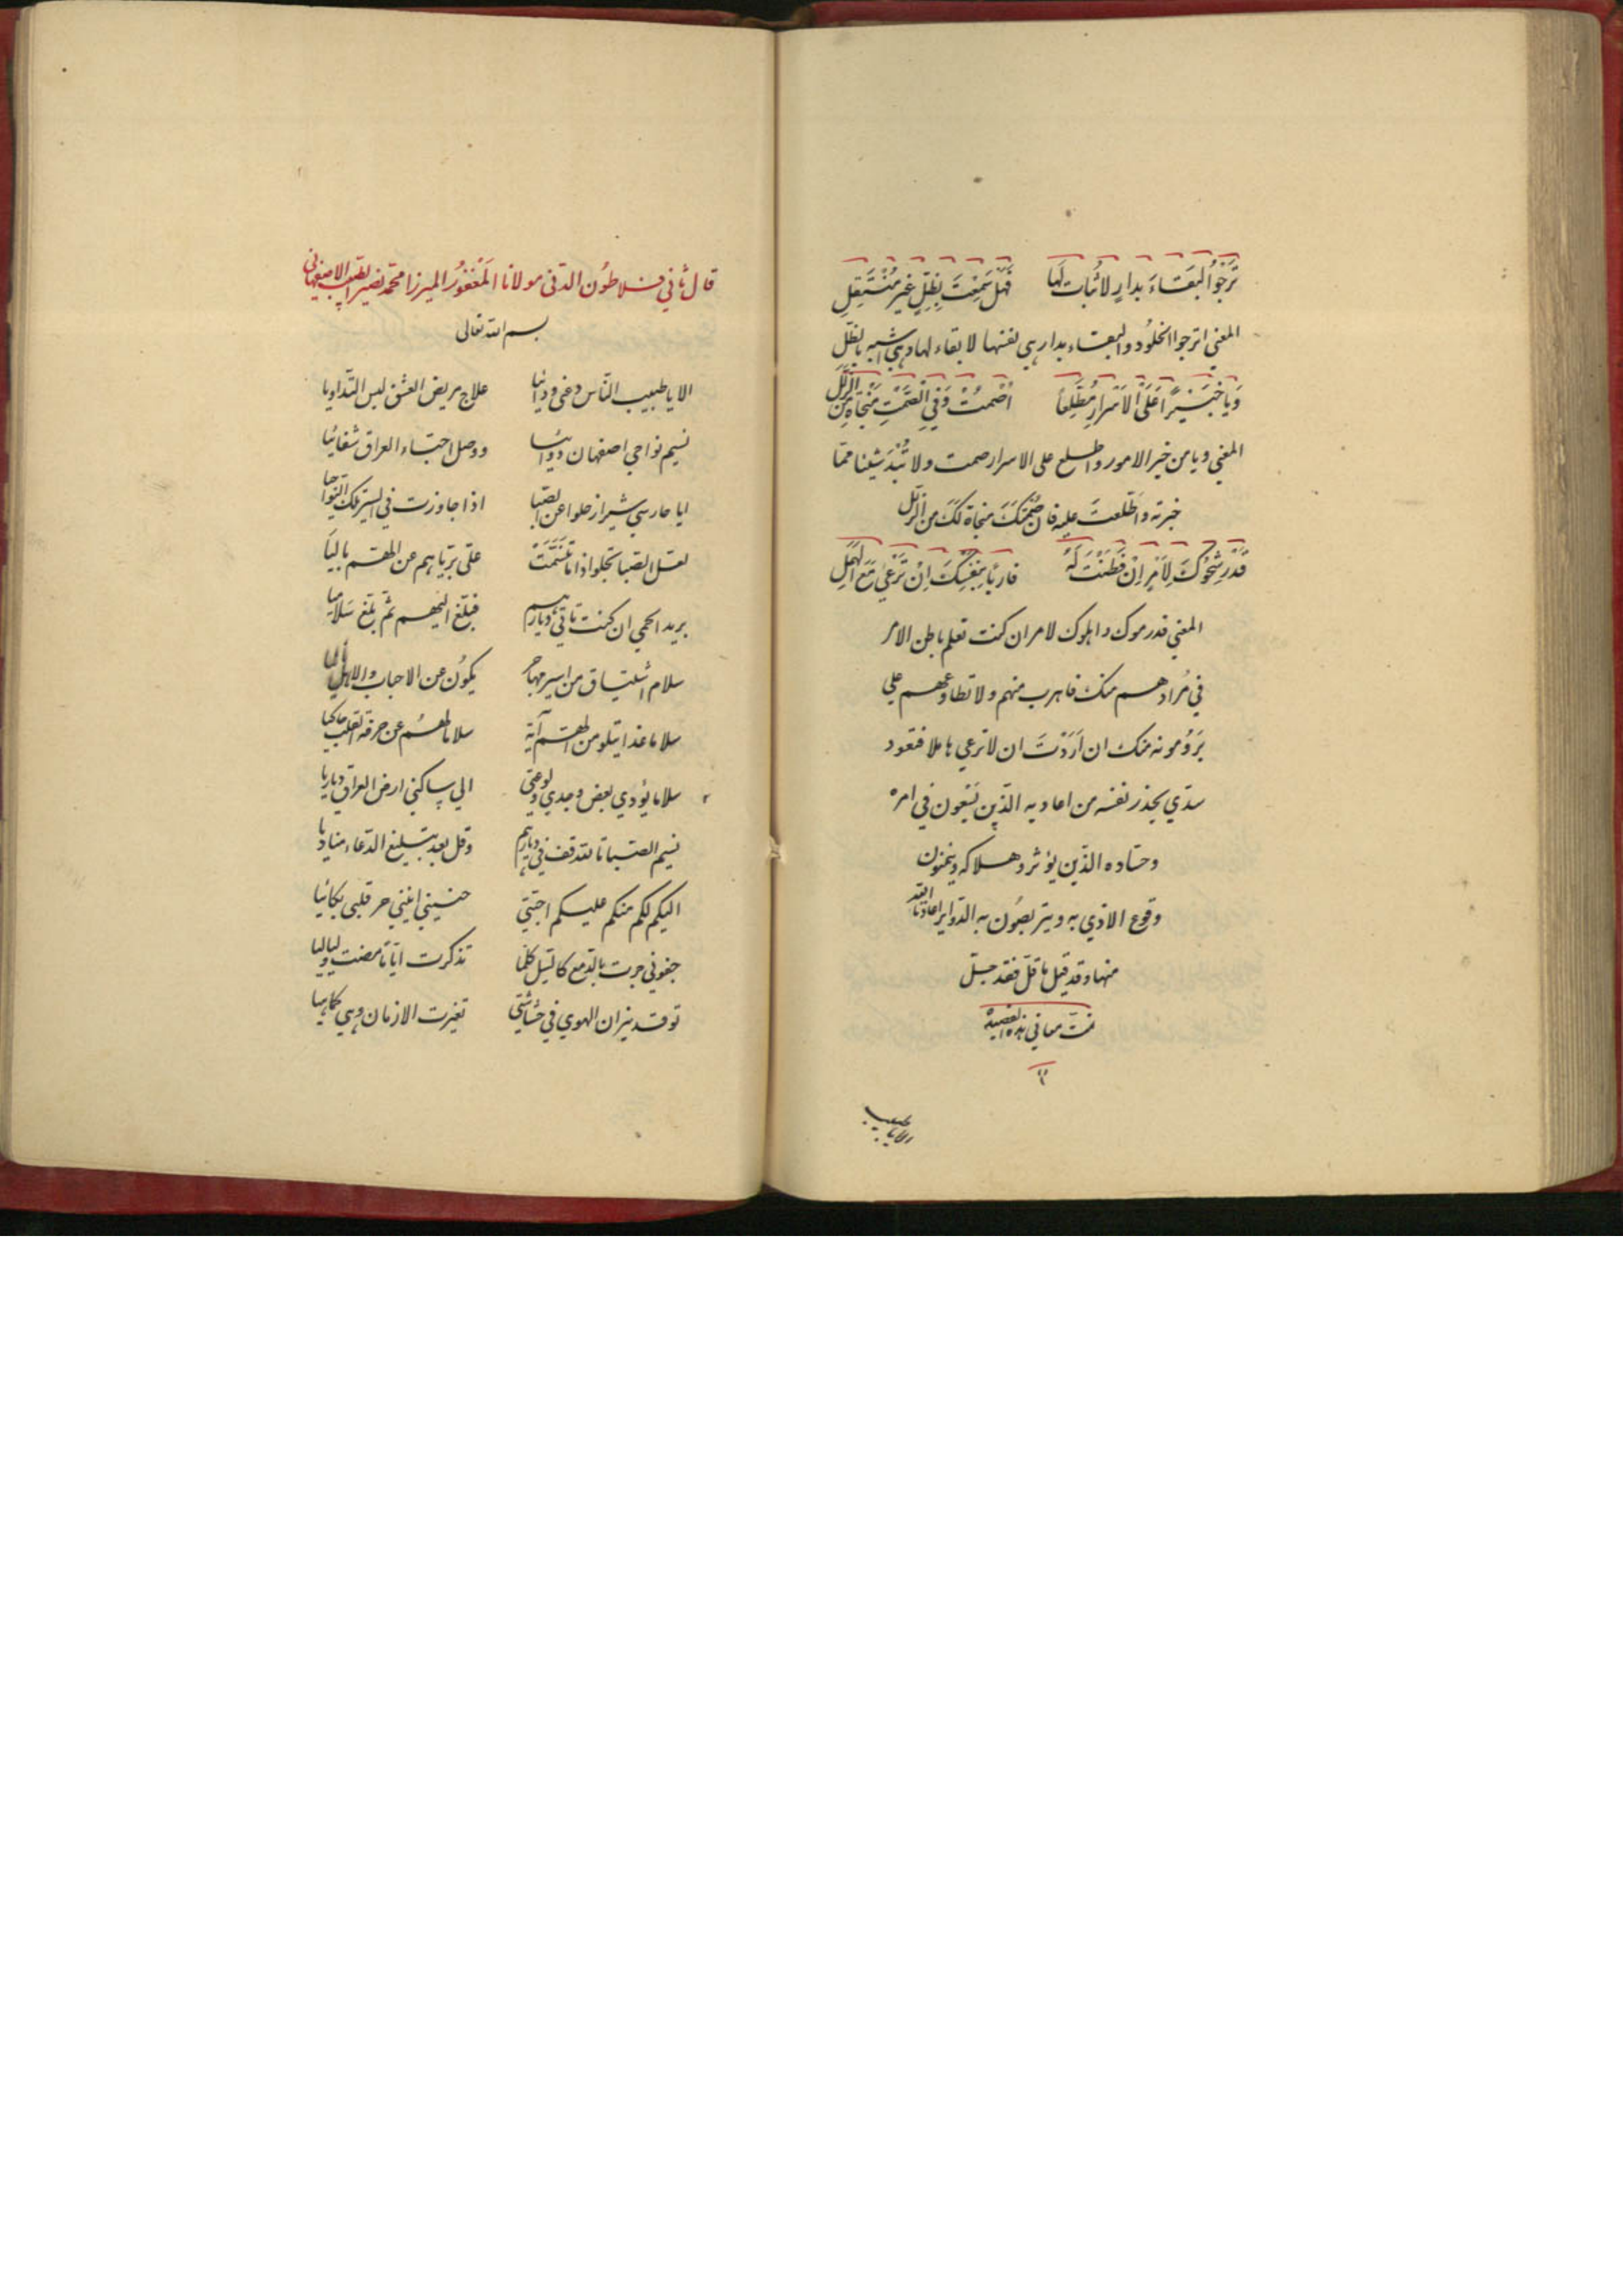 تَرجُوا البَقاءَ بِدارٍ لا ثَباتَ لَها فَهَل سَمِعتَ بِظِلٍّ غَيرِ مُنتَقِلِ
المعني اترجوا الخلود والبقاء بدار هي نفسها لا بقاء لها وهي اشبه بالظل
وَيا خَبيراً عَلَى الاَسرارِ مُطَّلِعاً اُصْمُتْ وَفي الصَّمتِ مَنجاةٌ مِنَ الزَّلَلِ
المعني ويا من خبر الامور واطلع على الاسرار صمت ولا تُبْدَ شيئا مما
خبرته واَطّلعتَ عليه فان صَمْتَكَ منجاة لَكَ من الزلل
قَدْ رشّحُوكَ لِاَمْرٍ اِنْ فَطَنْتَ لَهُ فاربَأ بِنَفسِكَ اَنْ تَرْعى مَعَ الهَمَلِ
المعني قد رموك واهلوك لامر ان كنت تعلم باطن الامر
في مُرادهم منك فاهرب منهم ولا تطاوعهم علي
يَرُومونه منك ان اَرَدْتَ ان لا ترعي هاملا فتقود
سدّي يحذر نفسه من اعاديه الّذين يَسْعون في امره
وحسّاده الذّين يؤثر وهلاكه ويتمنون
وقوع الاذي به ويتربصُون به الدّواير اعاذنا الله
منها وقد قيل ما قلّ فقد جلّ
تمت معاني هذه القصيدة
الا يا طبيب
قال ثاني فلاطُون الدّني مولانا المَغْفُورُ الميرزا محمد نصير الطبيب الاصفهاني
بسم الله تعالى
الا يا طبيب النّاس دعني ودائيا علاج مريض العشق ليس التّداويا
نسيم نواحي اصفهان دوائيا ووصل احبّاء العراق شفائيا
ايا حارسي شيراز حلوا عن الصّبا اذا جاوزت في السير تلك النّواحيا
لعل الصبا تجلوا اذا ما تَنَسَّمَتْ علّى بريّاهم عن الهم باليا
بريد الحمي ان كنت تاتي ديارهم فبلّغ اليهم ثمّ بلّغ سَلاميا
سلام اشتياق من اسير مهاجر يكُون عن الاحباب والاهل نائيا
سلاما غدا يتلو من الهمّ آية سلاما لهم عن حرقة القلب حاكيا
سلاما يؤدي بعض وجدي ولوعتي الي ساكني ارض العراق دياريا
نسيم الصّبا بالله قف في ديارهم وقل بعد تبليغ الدّعاء مناديا
اليكم لكم منكم عليكم احبّتي حنيني انيني حر قلبي بكائيا
جفوني جرت بالدّمع كالسّيل كلّما تذكرت ايّاما مضت ولياليا
توقد نيران الهوي في حُشاشتي تغيرت الازمان وهي كماهيا